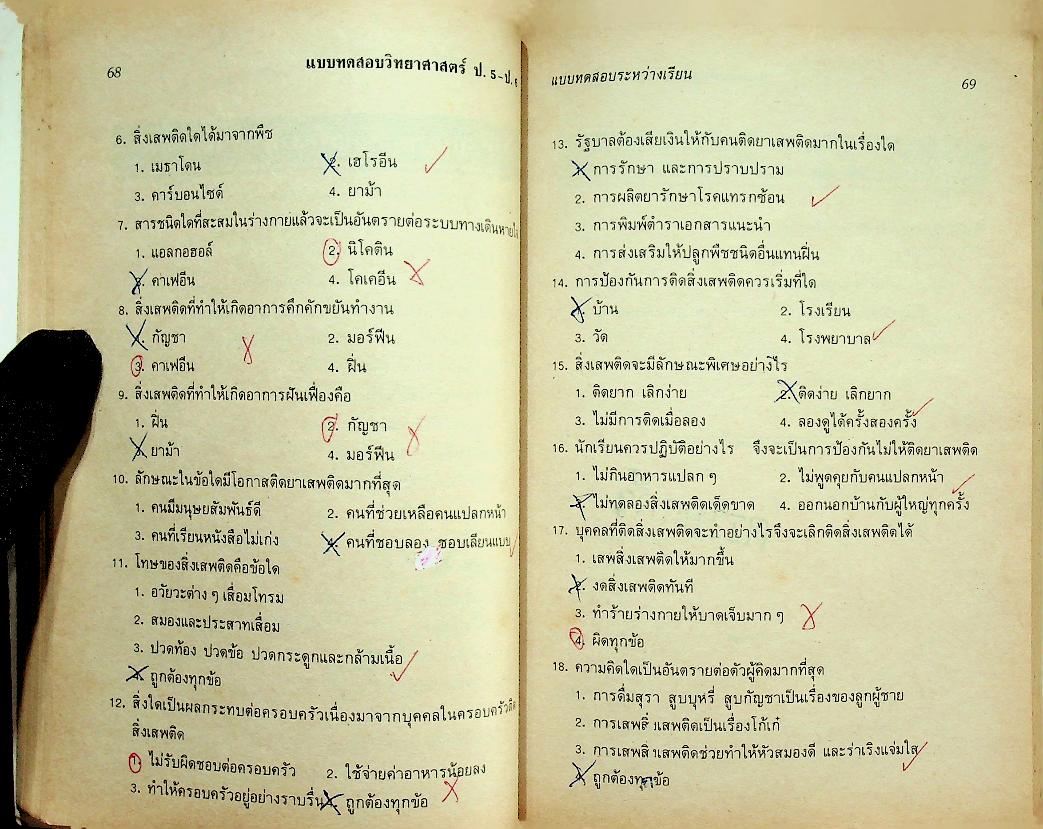 68
แบบทดสอบวิทยาศาสตร์ ป. 5-ป. 6
6. สิ่งเสพติดใดได้มาจากพืช
1. เมธาโดน 2. เฮโรอีน
3. คาร์บอนไซด์ 4. ยาม้า
7. สารชนิดใดที่สะสมในร่างกายแล้วจะเป็นอันตรายต่อระบบทางเดินหายใจ
1. แอลกอฮอล์ 2. นิโคติน
3. คาเฟอีน 4. โคเคอีน
8. สิ่งเสพติดที่ทำให้เกิดอาการคึกคักขยันทำงาน
1. กัญชา 2. มอร์ฟีน
3. คาเฟอีน 4. ฝิ่น
9. สิ่งเสพติดที่ทำให้เกิดอาการฝันเฟื่องคือ
1. ฝิ่น 2. กัญชา
3. ยาม้า 4. มอร์ฟีน
10. ลักษณะในข้อใดมีโอกาสติดยาเสพติดมากที่สุด
1. คนมีมนุษยสัมพันธ์ดี 2. คนที่ช่วยเหลือคนแปลกหน้า
3. คนที่เรียนหนังสือไม่เก่ง 4. คนที่ชอบลอง ชอบเลียนแบบ
11. โทษของสิ่งเสพติดคือข้อใด
1. อวัยวะต่าง ๆ เสื่อมโทรม
2. สมองและประสาทเสื่อม
3. ปวดท้อง ปวดข้อ ปวดกระดูกและกล้ามเนื้อ
4. ถูกต้องทุกข้อ
12. สิ่งใดเป็นผลกระทบต่อครอบครัวเนื่องมาจากบุคคลในครอบครัวติด
สิ่งเสพติด
1. ไม่รับผิดชอบต่อครอบครัว 2. ใช้จ่ายค่าอาหารน้อยลง
3. ทำให้ครอบครัวอยู่อย่างราบรื่น 4. ถูกต้องทุกข้อ
แบบทดสอบระหว่างเรียน
69
13. รัฐบาลต้องเสียเงินให้กับคนติดยาเสพติดมากในเรื่องใด
1. การรักษา และการปราบปราม
2. การผลิตยารักษาโรคแทรกซ้อน
3. การพิมพ์ตำราเอกสารแนะนำ
4. การส่งเสริมให้ปลูกพืชชนิดอื่นแทนฝิ่น
14. การป้องกันการติดสิ่งเสพติดควรเริ่มที่ใด
1. บ้าน 2. โรงเรียน
3. วัด 4. โรงพยาบาล
15. สิ่งเสพติดจะมีลักษณะพิเศษอย่างไร
1. ติดยาก เลิกง่าย 2. ติดง่าย เลิกยาก
3. ไม่มีการติดเมื่อลอง 4. ลองดูได้ครั้งสองครั้ง
16. นักเรียนควรปฏิบัติอย่างไร จึงจะเป็นการป้องกันไม่ให้ติดยาเสพติด
1. ไม่กินอาหารแปลก ๆ 2. ไม่พูดคุยกับคนแปลกหน้า
3. ไม่ทดลองสิ่งเสพติดเด็ดขาด 4. ออกนอกบ้านกับผู้ใหญ่ทุกครั้ง
17. บุคคลที่ติดสิ่งเสพติดจะทำอย่างไรจึงจะเลิกติดสิ่งเสพติดได้
1. เสพสิ่งเสพติดให้มากขึ้น
2. งดสิ่งเสพติดทันที
3. ทำร้ายร่างกายให้บาดเจ็บมาก ๆ
4. ผิดทุกข้อ
18. ความคิดใดเป็นอันตรายต่อตัวผู้คิดมากที่สุด
1. การดื่มสุรา สูบบุหรี่ สูบกัญชาเป็นเรื่องของลูกผู้ชาย
2. การเสพสิ่งเสพติดเป็นเรื่องโก้เก๋
3. การเสพสิ่งเสพติดช่วยทำให้หัวสมองดี และร่าเริงแจ่มใส
4. ถูกต้องทุกข้อ